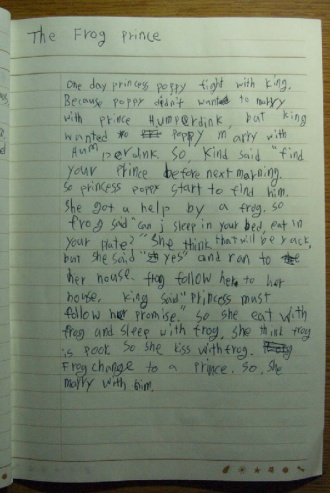 The Frog Prince
One day princess poppy fight with king.
Because poppy didn't wanted to marry
with prince Humperdink, but king
wanted to poppy marry with
Humperdink. So, Kind said "find
your Prince before next morning.
So princess poppy start to find him.
She got a help by a frog. So
frog said "can i sleep in your bed, eat in
your Plate?" She think that will be yuck,
but she said "yes" and ran to
her house. frog follow her to her
house. king said "Princess must
follow her promise." So she eat with
frog and sleep with frog, she think frog
is poor. So she kiss with frog.
Frog change to a Prince. So, she
marry with him.